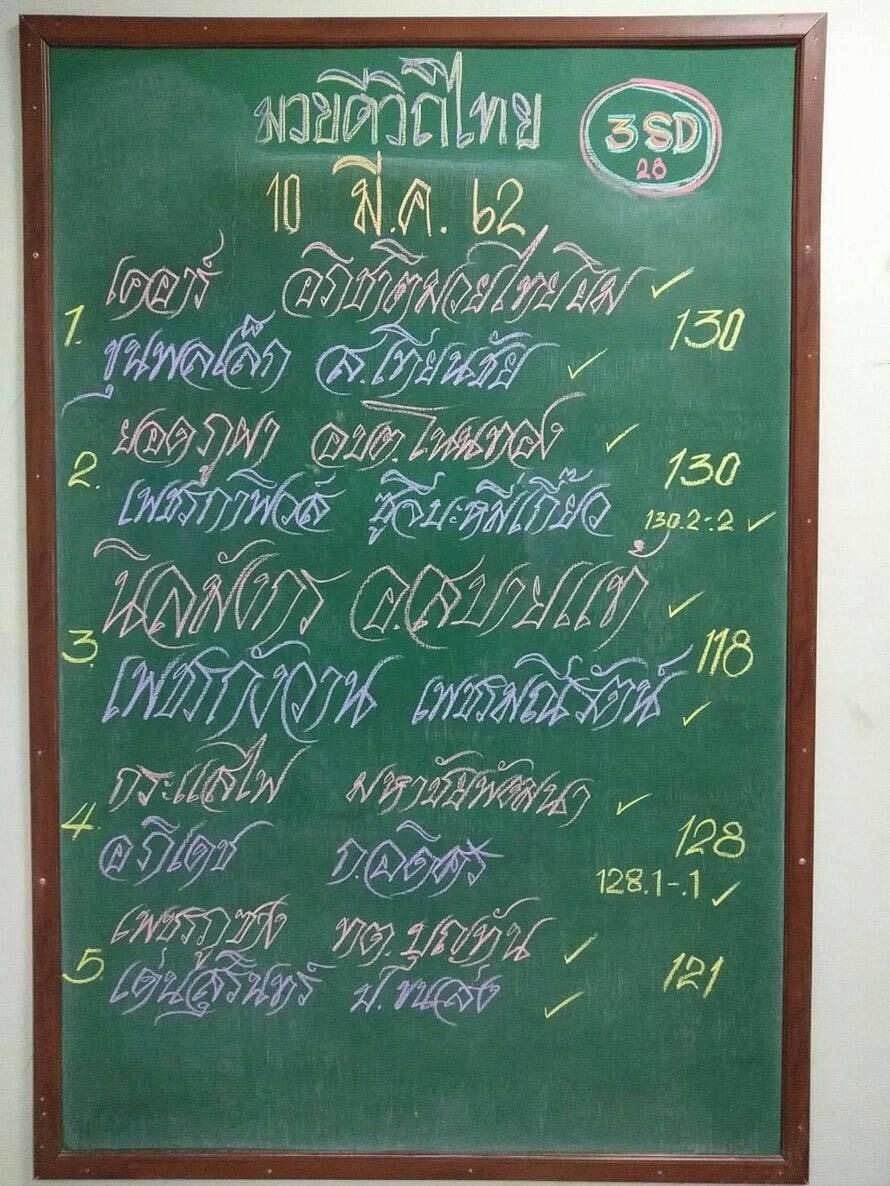 มวยดีวิถีไทย
3 SD
28
10 มี.ค. 62
1. เคอาร์ อภิชาติมวยไทยยิม ✓
130
ขุนพลเล็ก ส.เทียนชัย ✓
2. ยอดภูผา อบต.โนนทอง ✓
130
เพชรกาฬวงส์ ซูจีบะหมี่เกี๊ยว 130.2-.2 ✓
3. นิลมังกร อ.สบายแท้ ✓
118
เพชรกังวาน เพชรมณีรัตน์ ✓
4. กระแสไฟ มหาชัยพัฒนา ✓
128
อภิเดช ก.อดิศร 128.1-.1 ✓
5. เพชรภูซาง ทต.บุญทัน ✓
121
เด่นสุรินทร์ ป.ขนส่ง ✓